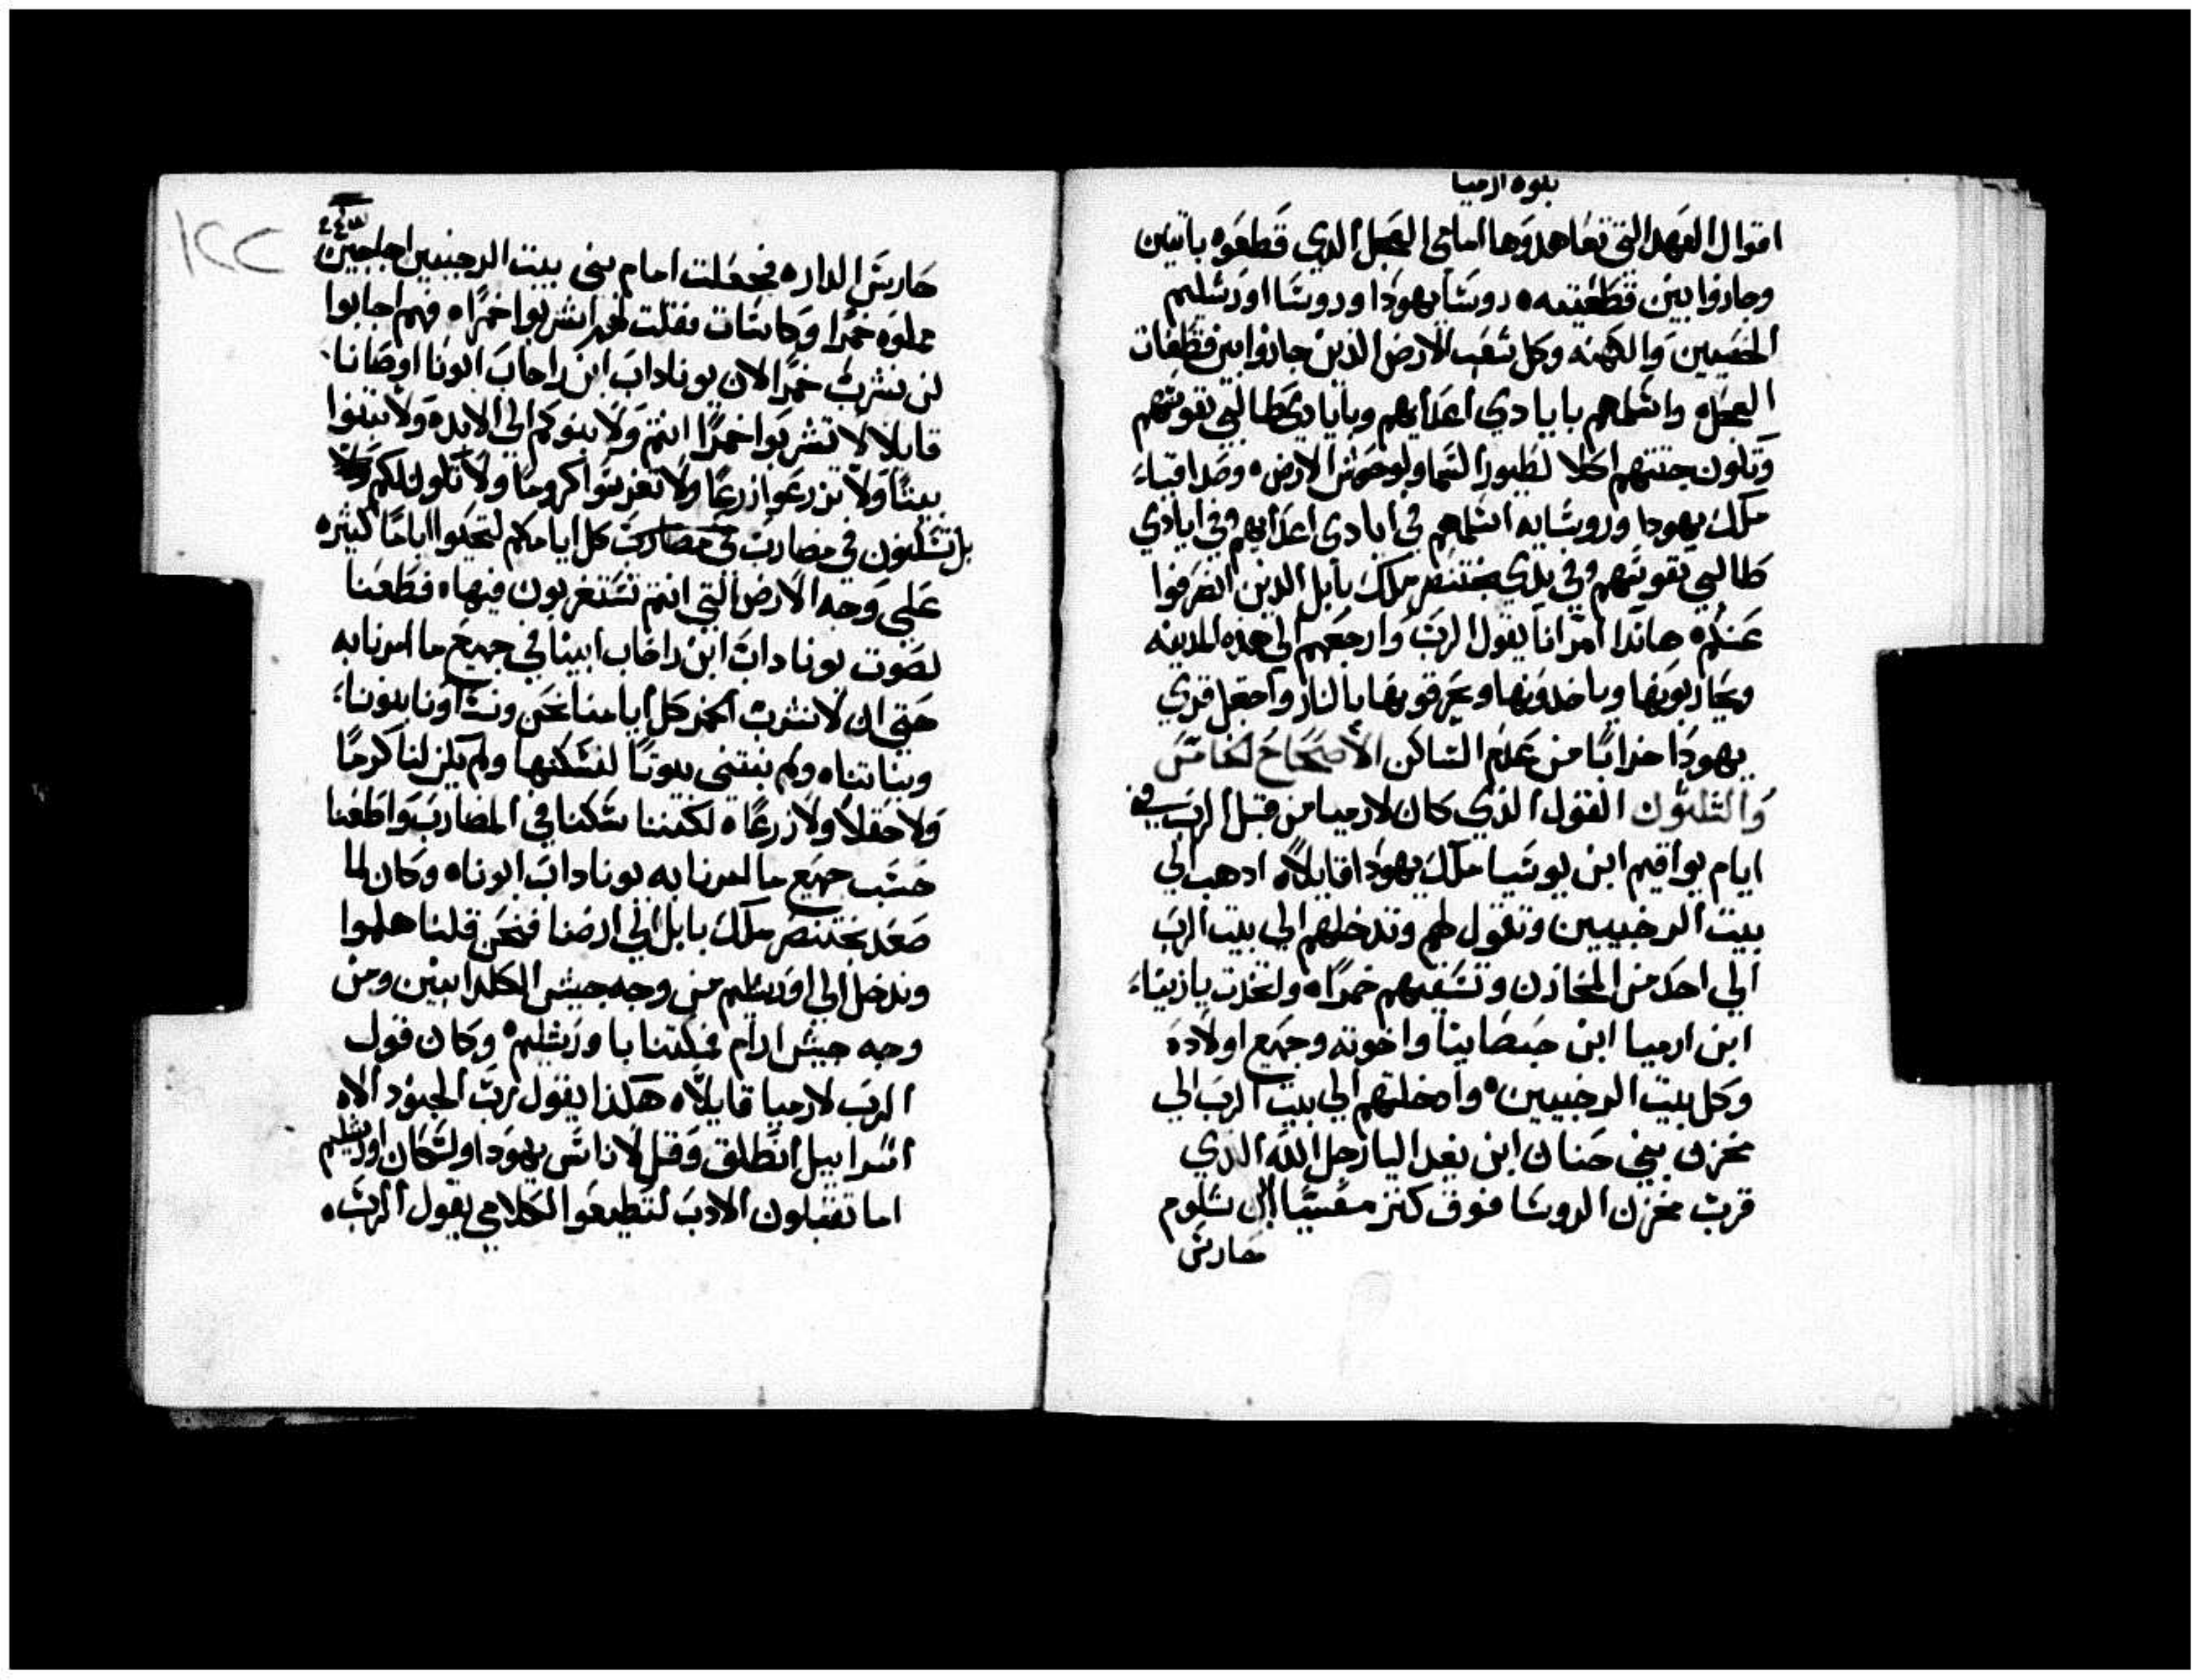 نبوة ارميا
اقوال العهد التي تعاهدوها امامي العجل الدي قطعوه باتنين
وجازوا بين قطعتيه ه روسا يهودا وروسا اورشليم
الخصيين والكهنه وكل شعب الارض الذين جازوا بين قطعات
العجل ه واسلمهم بايادي اعدايهم وبايادي طالبي نفوسهم
وتكون جتتهم اكلا لطيور السما ولوحوش الارض ه وصداقياء
ملك يهودا وروسايه اسلمهم في ايادي اعدايهم وفي ايادي
طالبي نفوسهم وفي يدي بختنصر ملك بابل الذين انصرفوا
عنكم ه هاندا امر انا يقول الرب وارجعهم الي هذه المدينه
ويحاربونها وياخدونها ويحرقونها بالنار واجعل قري
يهودا خرابا من عدم الساكن الاصحاح الخامس
والتلتون القول الذي كان لارميا من قبل الرب في
ايام يواقيم ابن يوشيا ملك يهودا قايلا ه ادهب الي
بيت الرخبيين وتقول لهم وتدخلهم الي بيت الرب
الي احد من المخازن وتسقيهم خمرا ه واخدت يازنياء
ابن ارميا ابن حبصانيا واخوته وجميع اولاده
وكل بيت الرخبيين ه وادخلتهم الي بيت الرب الي
مخزن بني حنان ابن يغداليا رجل الله الذي
قرب مخزن الروسا فوق كنز معسيا ابن شلوم
حارس
٢٤٣
١٢٢
حارس الدار ه فجعلت امام بني بيت الرخبيين اجاجين
مملوه خمرا وكاسات فقلت لهم اشربوا خمرا ه فهم اجابوا
لن نشرب خمرا لان يوناداب ابن راحاب ابونا اوصانا
قايلا لا تشربوا خمرا انتم ولا بنوكم الي الابد ه ولا تبنوا
بيتا ولا تزرعوا زرعا ولا تغرسوا كروما ولا تكون لكم
بل تسكنون في مضارب في مضارب كل ايامكم لتحيوا اياما كثيره
علي وجه الارض التي انتم تستغربون فيها ه فطعنا
لصوت يوناداب ابن راخاب ابينا في جميع ما امرنا به
حتي ان لا نشرب الخمر كل ايامنا نحن ونساونا بنونا
وبناتنا ه ولم نبتني بيوتا لنسكنها ولم يكن لنا كرما
ولا حقلا ولا زرعا ه لكننا سكنا في المضارب واطعنا
حسب جميع ما امرنا به يوناداب ابونا ه وكان لما
صعد بختنصر ملك بابل الي ارضنا فنحن قلنا هلموا
وندخل الي اورشليم من وجه جيش الكلدانيين ومن
وجه جيش ارام فمكتنا باورشليم ه وكان قول
الرب لارميا قايلا ه هكذا يقول رب الجنود الاه
اسراييل انطلق وقل لاناس يهودا ولسكان اورشليم
اما تقبلون الادب لتطيعوا لكلامي يقول الرب ه